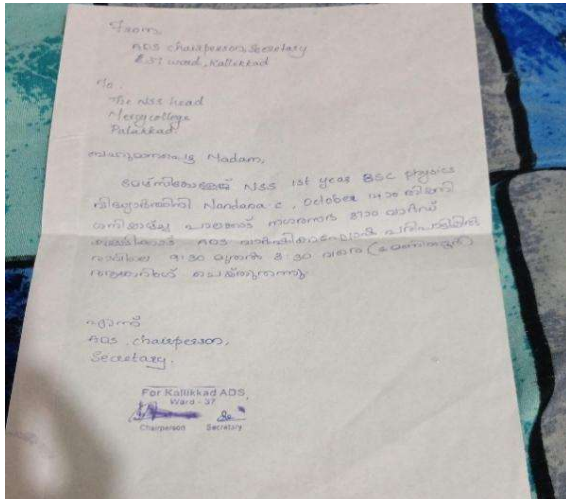 From,
ADS chairperson, Secretary
37 ward, Kallikkad
To,
The NSS head
Mercy college
Palakkad.
ബഹുമാനപ്പെട്ട Madam,
മേഴ്സികോളേജ് NSS 1st year BSC physics
വിദ്യാർത്ഥിനി Nandana.c, October 14ാം തിയതി
ശനിയാഴ്ച പാലക്കാട് നഗരസഭ 37ാം വാർഡ്
ADS വാർഷികാഘോഷ പരിപാടിയിൽ
രാവിലെ 9:30 മുതൽ 8:30 വരെ
ചെയ്തിരുന്നു.
എന്ന്
ADS, chairperson,
Secretary.
For Kallikkad ADS,
Ward - 37
Chairperson Secretary